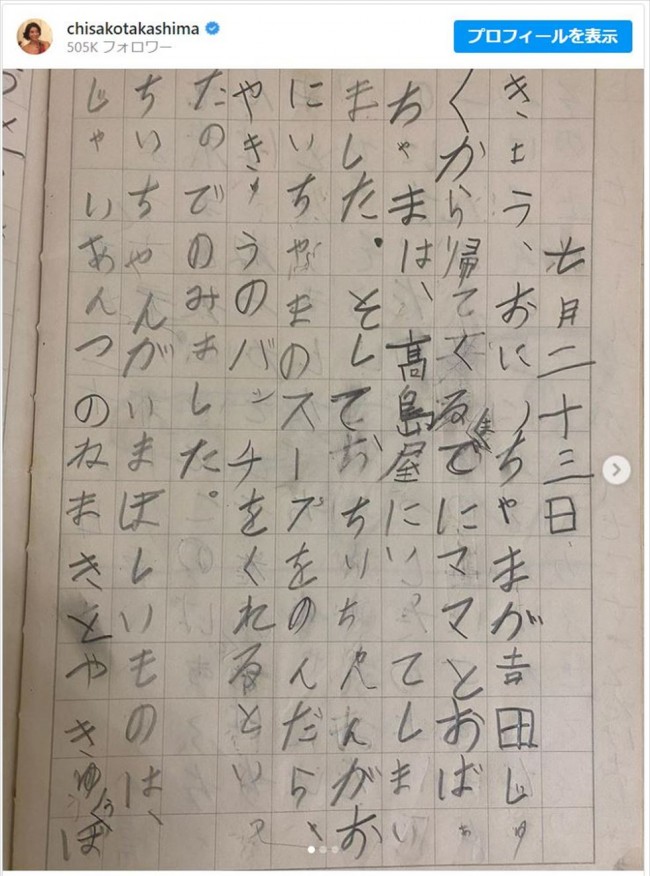 chisakotakashima
505K フォロワー
プロフィールを表示
七月二十三日
きょう、おにいちゃまが吉田じゅ
くから帰てくるまでにママとおばあ
ちゃまは、高島屋にいってしまい
ました。そしてちいちゃんがお
にいちゃまのスープをのんだら、
やきゅうのバッチをくれるといっ
たのでのみました。
ちいちゃんがいまほしいものは、
じゃいあんつのねまきとやきゅうぼ